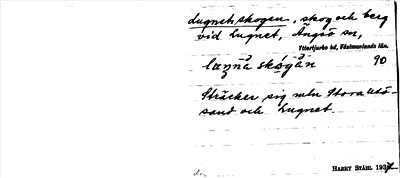 Lugnetskogen, skog och berg
vid Lugnet, Ängsö sn,
Yttertjurbo hd, Västmanlands län.
90
Sträcker sig mln Stora Utö-
sand och Lugnet.
HARRY STÅHL 1937